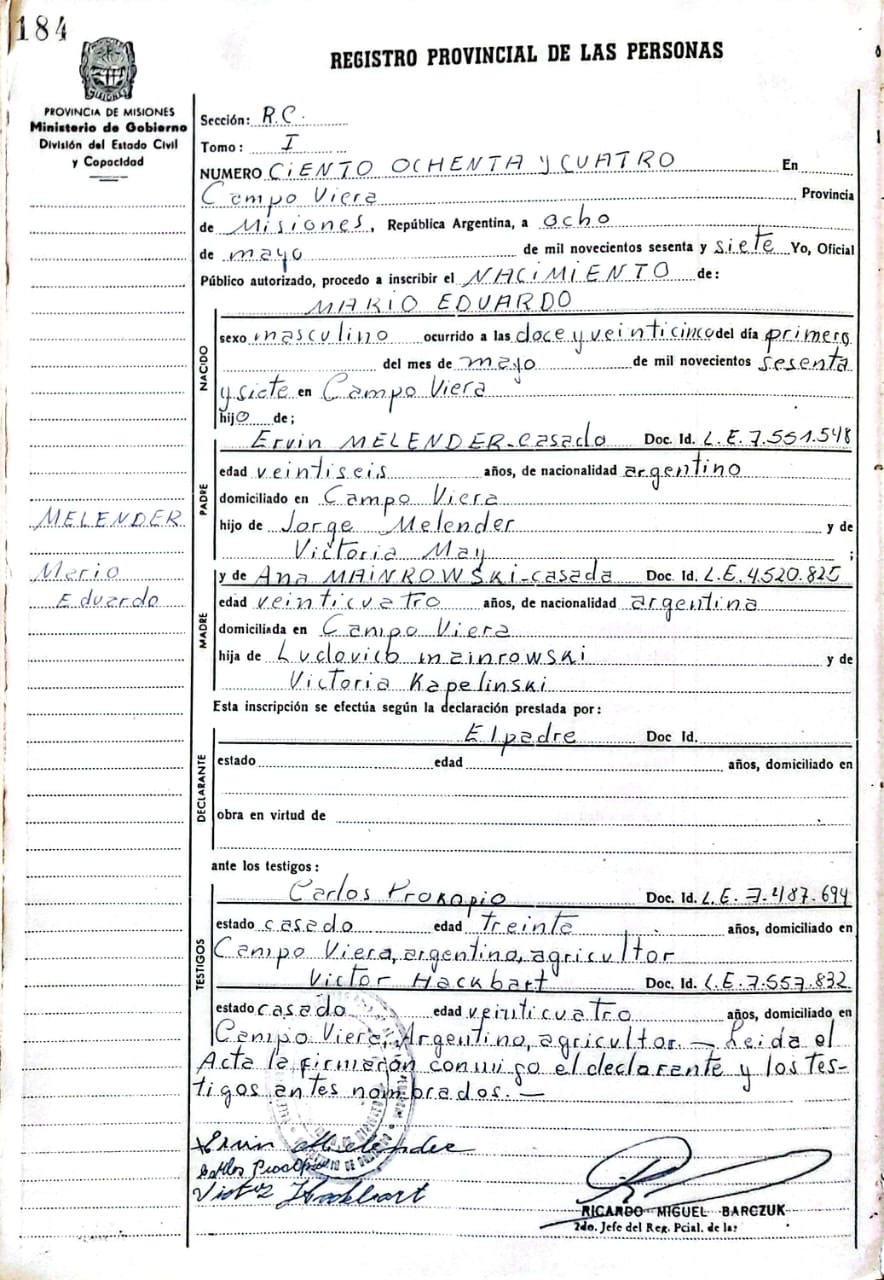 184
REGISTRO PROVINCIAL DE LAS PERSONAS
PROVINCIA DE MISIONES
Ministerio de Gobierno
División del Estado Civil
y Capacidad
Sección: R.C.
Tomo: I
NUMERO CIENTO OCHENTA Y CUATRO En
Campo Viera Provincia
de Misiones, República Argentina, a ocho
de mayo de mil novecientos sesenta y siete Yo, Oficial
Público autorizado, procedo a inscribir el NACIMIENTO de:
MARIO EDUARDO
NACIDO
sexo masculino ocurrido a las doce y veinticinco del día primero
del mes de mayo de mil novecientos sesenta
y siete en Campo Viera
hijo de;
PADRE
Ervin MELENDER-casado Doc. Id. L.E.7.551.548
edad veintiseis años, de nacionalidad argentino
domiciliado en Campo Viera
hijo de Jorge Melender y de
Victoria May ;
MELENDER
Mario
Eduardo
MADRE
y de Ana MAINROWSKI-casada Doc. Id. L.E.4.520.825
edad veinticuatro años, de nacionalidad argentina
domiciliada en Campo Viera
hija de Ludovico mainrowski y de
Victoria Kapelinski
Esta inscripción se efectúa según la declaración prestada por:
DECLARANTE
El padre Doc Id.
estado edad años, domiciliado en
obra en virtud de
ante los testigos:
TESTIGOS
Carlos Prokopio Doc. Id. L.E.7.487.694
estado casado edad treinta años, domiciliado en
Campo Viera, argentino, agricultor
Victor Hackbart Doc. Id. L.E.7.557.832
estado casado edad veinticuatro años, domiciliado en
Campo Viera, Argentino, agricultor. — Leida el
Acta la firmarón conmigo el declarante y los tes-
tigos antes nombrados. —
Ervin Melender
Carlos Procopio
Victor Hackbart
RICARDO MIGUEL BARCZUK
2do. Jefe del Reg. Pcial. de las